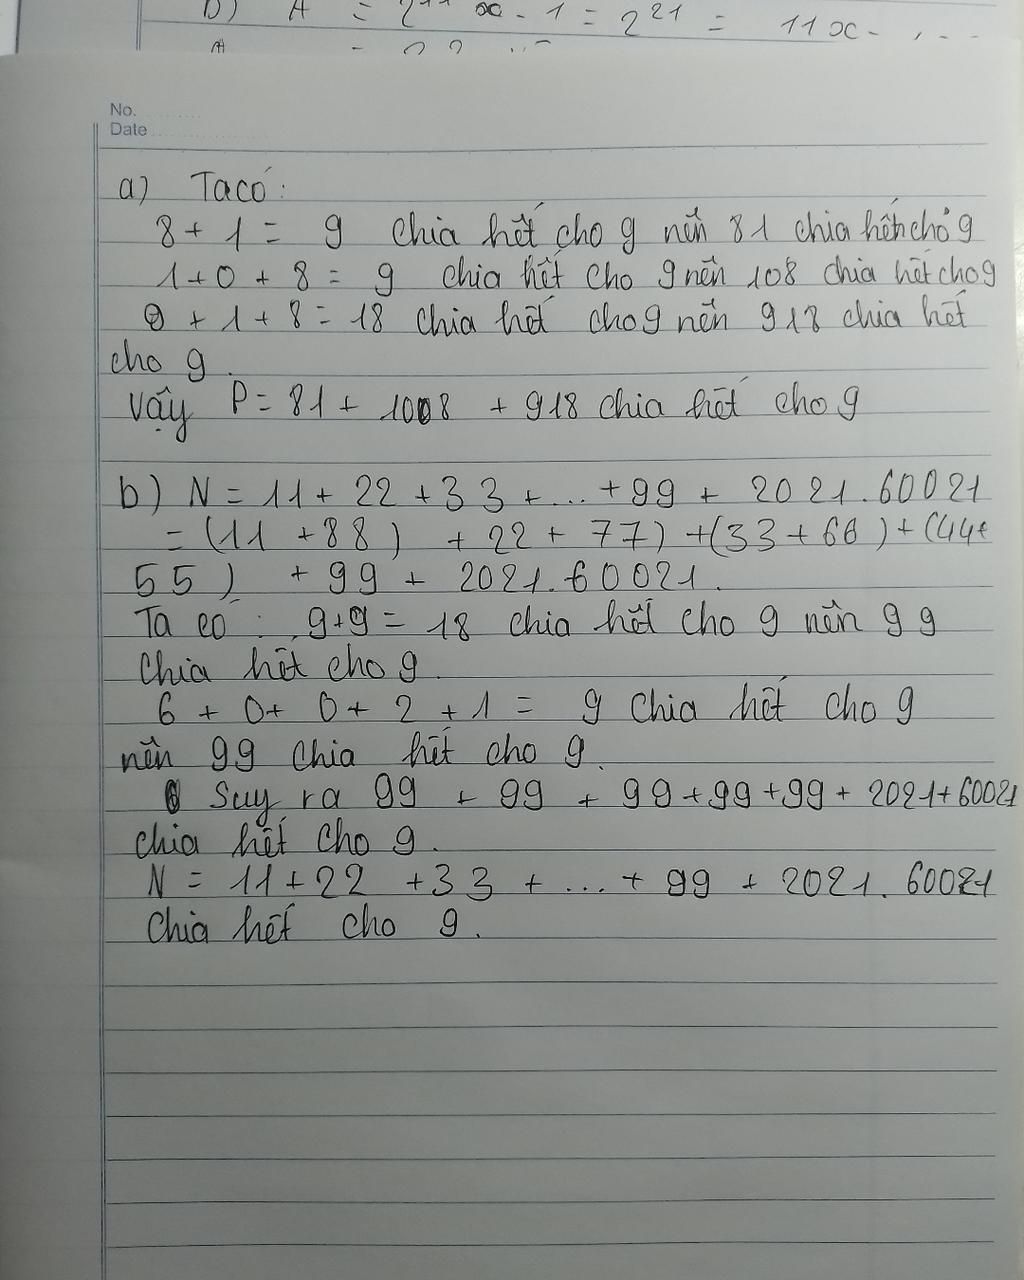 b) A = 2¹¹ x - 1 = 2²¹ = 11x -
No.
Date
a) Ta có:
8 + 1 = 9 chia hết cho 9 nên 81 chia hết cho 9
1 + 0 + 8 = 9 chia hết cho 9 nên 108 chia hết cho 9
9 + 1 + 8 = 18 chia hết cho 9 nên 918 chia hết
cho 9.
Vậy P = 81 + 1008 + 918 chia hết cho 9
b) N = 11 + 22 + 33 + ... + 99 + 2021.60021
= (11 + 88) + 22 + 77) + (33 + 66) + (44+
55) + 99 + 2021.60021.
Ta có : 9+9 = 18 chia hết cho 9 nên 99
chia hết cho 9.
6 + 0 + 0 + 2 + 1 = 9 chia hết cho 9
nên 99 chia hết cho 9.
Suy ra 99 + 99 + 99 + 99 + 99 + 2021 + 60021
chia hết cho 9.
N = 11 + 22 + 33 + ... + 99 + 2021. 60021
chia hết cho 9.